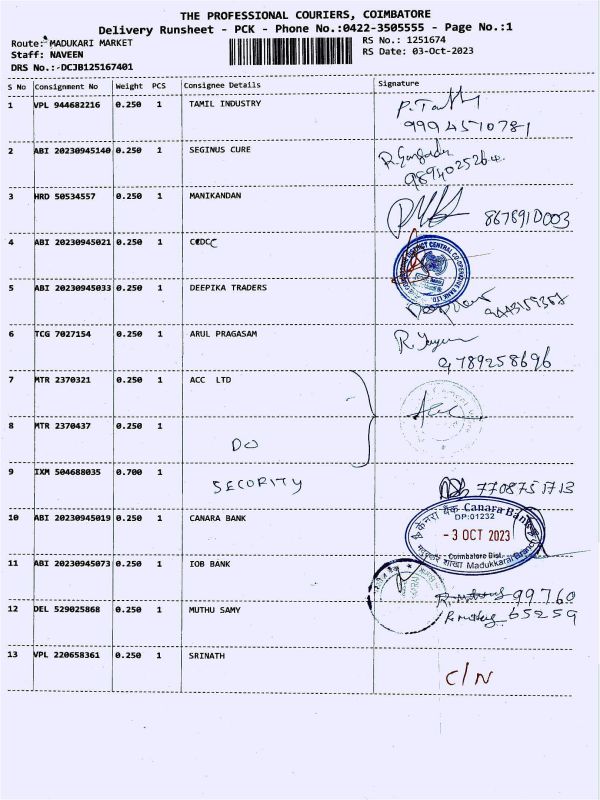 THE PROFESSIONAL COURIERS, COIMBATORE
Delivery Runsheet - PCK - Phone No.:0422-3505555 - Page No.:1
Route: MADUKARI MARKET
RS No.: 1251674
Staff: NAVEEN
RS Date: 03-Oct-2023
DRS No.:-DCJB125167401
S No Consignment No Weight PCS Consignee Details Signature
1 VPL 944682216 0.250 1 TAMIL INDUSTRY
9994570781
2 ABI 20230945140 0.250 1 SEGINUS CURE
9894025264
3 HRD 50534557 0.250 1 MANIKANDAN
8678910003
4 ABI 20230945021 0.250 1 CCDCC
5 ABI 20230945033 0.250 1 DEEPIKA TRADERS
6 TCG 7027154 0.250 1 ARUL PRAGASAM
9789258696
7 MTR 2370321 0.250 1 ACC LTD
8 MTR 2370437 0.250 1
DO
9 IXM 504688035 0.700 1 SECORITY
7708751713
10 ABI 20230945019 0.250 1 CANARA BANK
केनरा बैंक Canara Bank
DP:01232
- 3 OCT 2023
Coimbatore Dist.
शाखा Madukkarai Branch
11 ABI 20230945073 0.250 1 IOB BANK
99760
12 DEL 529025868 0.250 1 MUTHU SAMY
65259
13 VPL 220658361 0.250 1 SRINATH
C/N